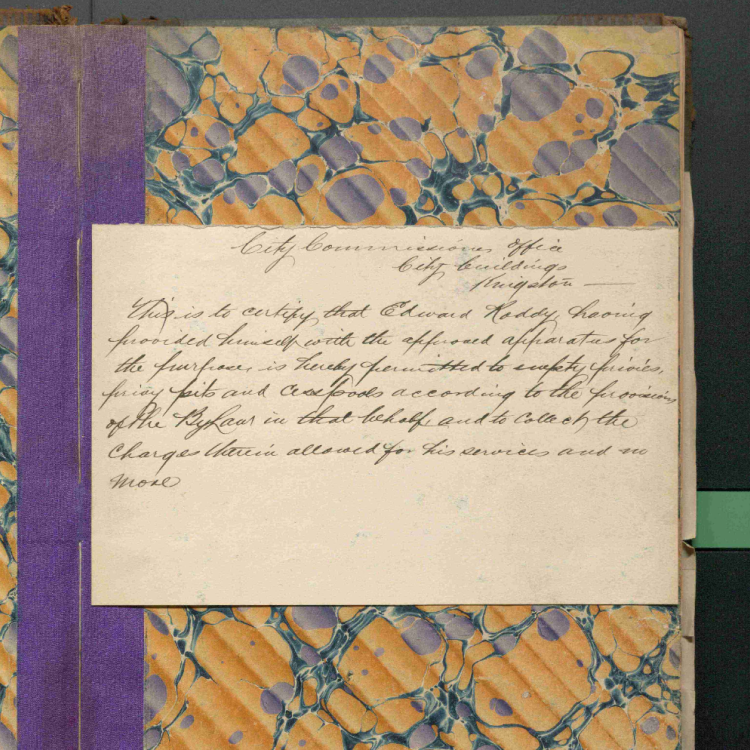 City Commissioners office
City buildings
Kingston —
This is to certify that Edward Haddy having
provided himself with the approved apparatus for
the purpose, is hereby permitted to empty privies,
privy pits and cesspools according to the provisions
of the By Law in that behalf, and to Collect the
Charges therein allowed for his services and no
more